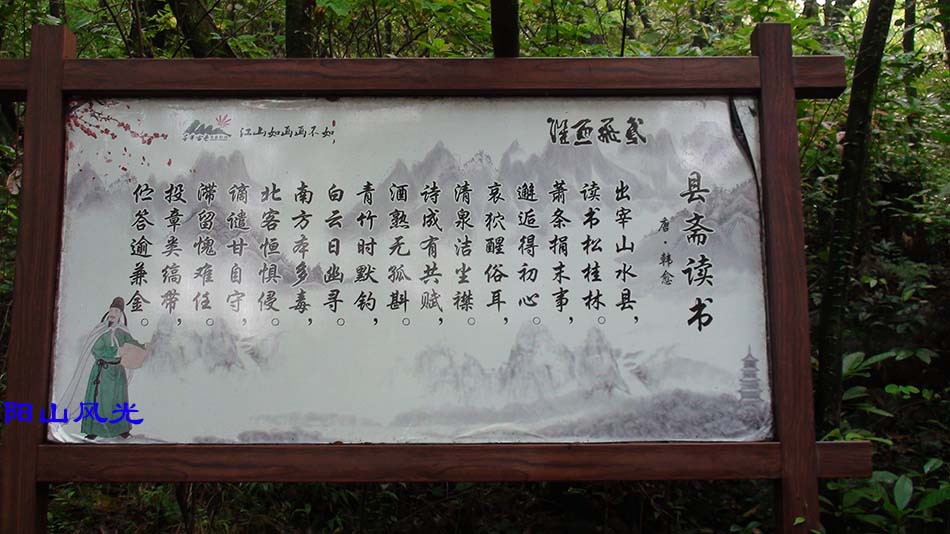 鳶飛魚躍
江山如画画不如
千年古邑
县斋读书
唐·韩愈
出宰山水县，
读书松桂林。
萧条捐末事，
邂逅得初心。
哀狖醒俗耳，
清泉洁尘襟。
诗成有共赋，
酒熟无孤斟。
青竹时默钓，
白云日幽寻。
南方本多毒，
北客恒惧侵。
谪谴甘自守，
滞留愧难任。
投章类缟带，
伫答逾兼金。
阳山风光